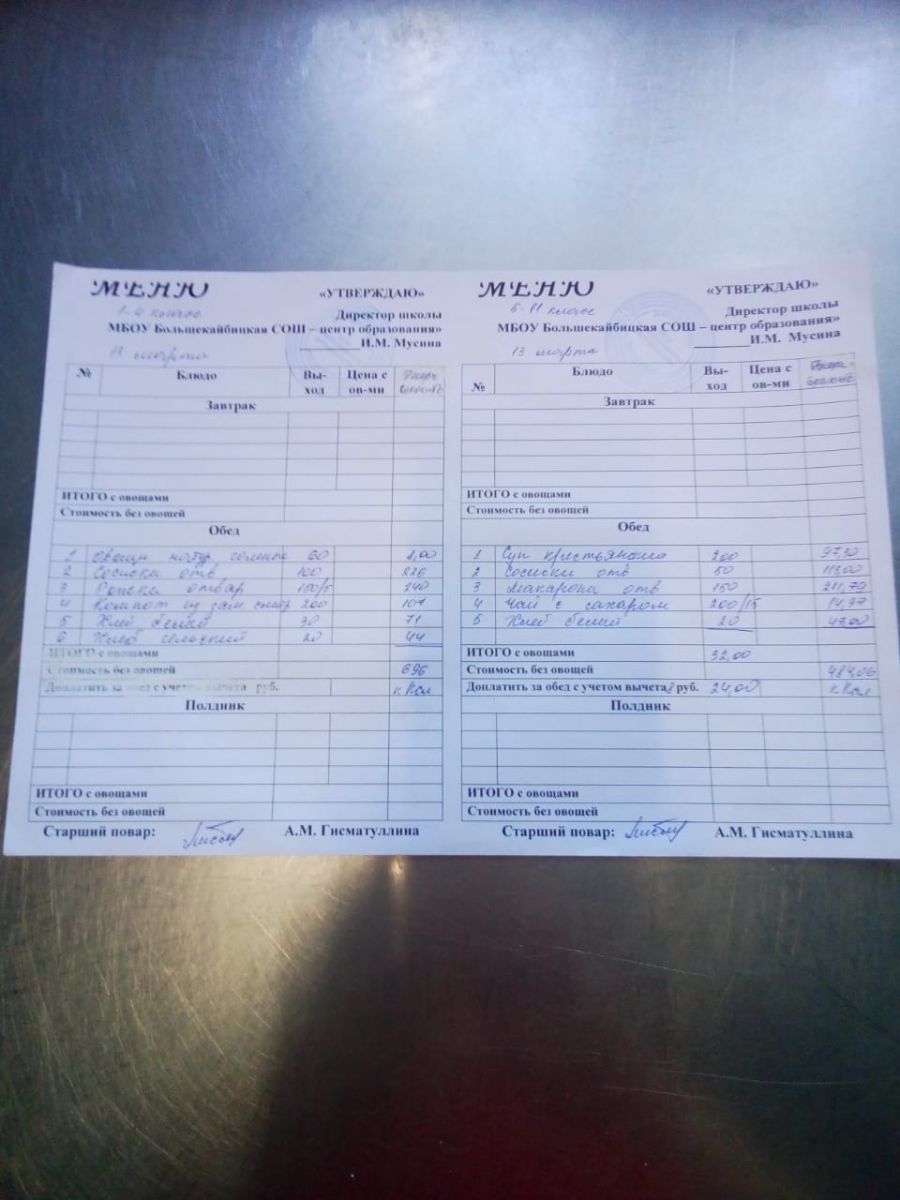 МЕНЮ «УТВЕРЖДАЮ»
1-4 классы
Директор школы
МБОУ Большекайбицкая СОШ – центр образования»
И.М. Мусина
13 марта
№ Блюдо Вы-ход Цена с ов-ми
Завтрак
ИТОГО с овощами
Стоимость без овощей
Обед
1 Овощи натур. соленые 60
2 Сосиски отв 100 226
3 отвар 150/5 240
4 Компот из 200 107
5 Хлеб белый 30 71
6 Хлеб сельский 20 44
ИТОГО с овощами
Стоимость без овощей 696
Доплатить за обед с учетом вычета руб. кКал
Полдник
ИТОГО с овощами
Стоимость без овощей
Старший повар: А.М. Гисматуллина
МЕНЮ «УТВЕРЖДАЮ»
5-11 классы
Директор школы
МБОУ Большекайбицкая СОШ – центр образования»
И.М. Мусина
13 марта
№ Блюдо Вы-ход Цена с ов-ми
Завтрак
ИТОГО с овощами
Стоимость без овощей
Обед
1 Суп 200 97,30
2 Сосиски отв 50 113,00
3 Макароны отв 150 211,79
4 Чай с сахаром 200/15 14,97
5 Хлеб белый 20 47,00
ИТОГО с овощами 32,00
Стоимость без овощей 484,06
Доплатить за обед с учетом вычета 8 руб. 24,00 кКал
Полдник
ИТОГО с овощами
Стоимость без овощей
Старший повар: А.М. Гисматуллина